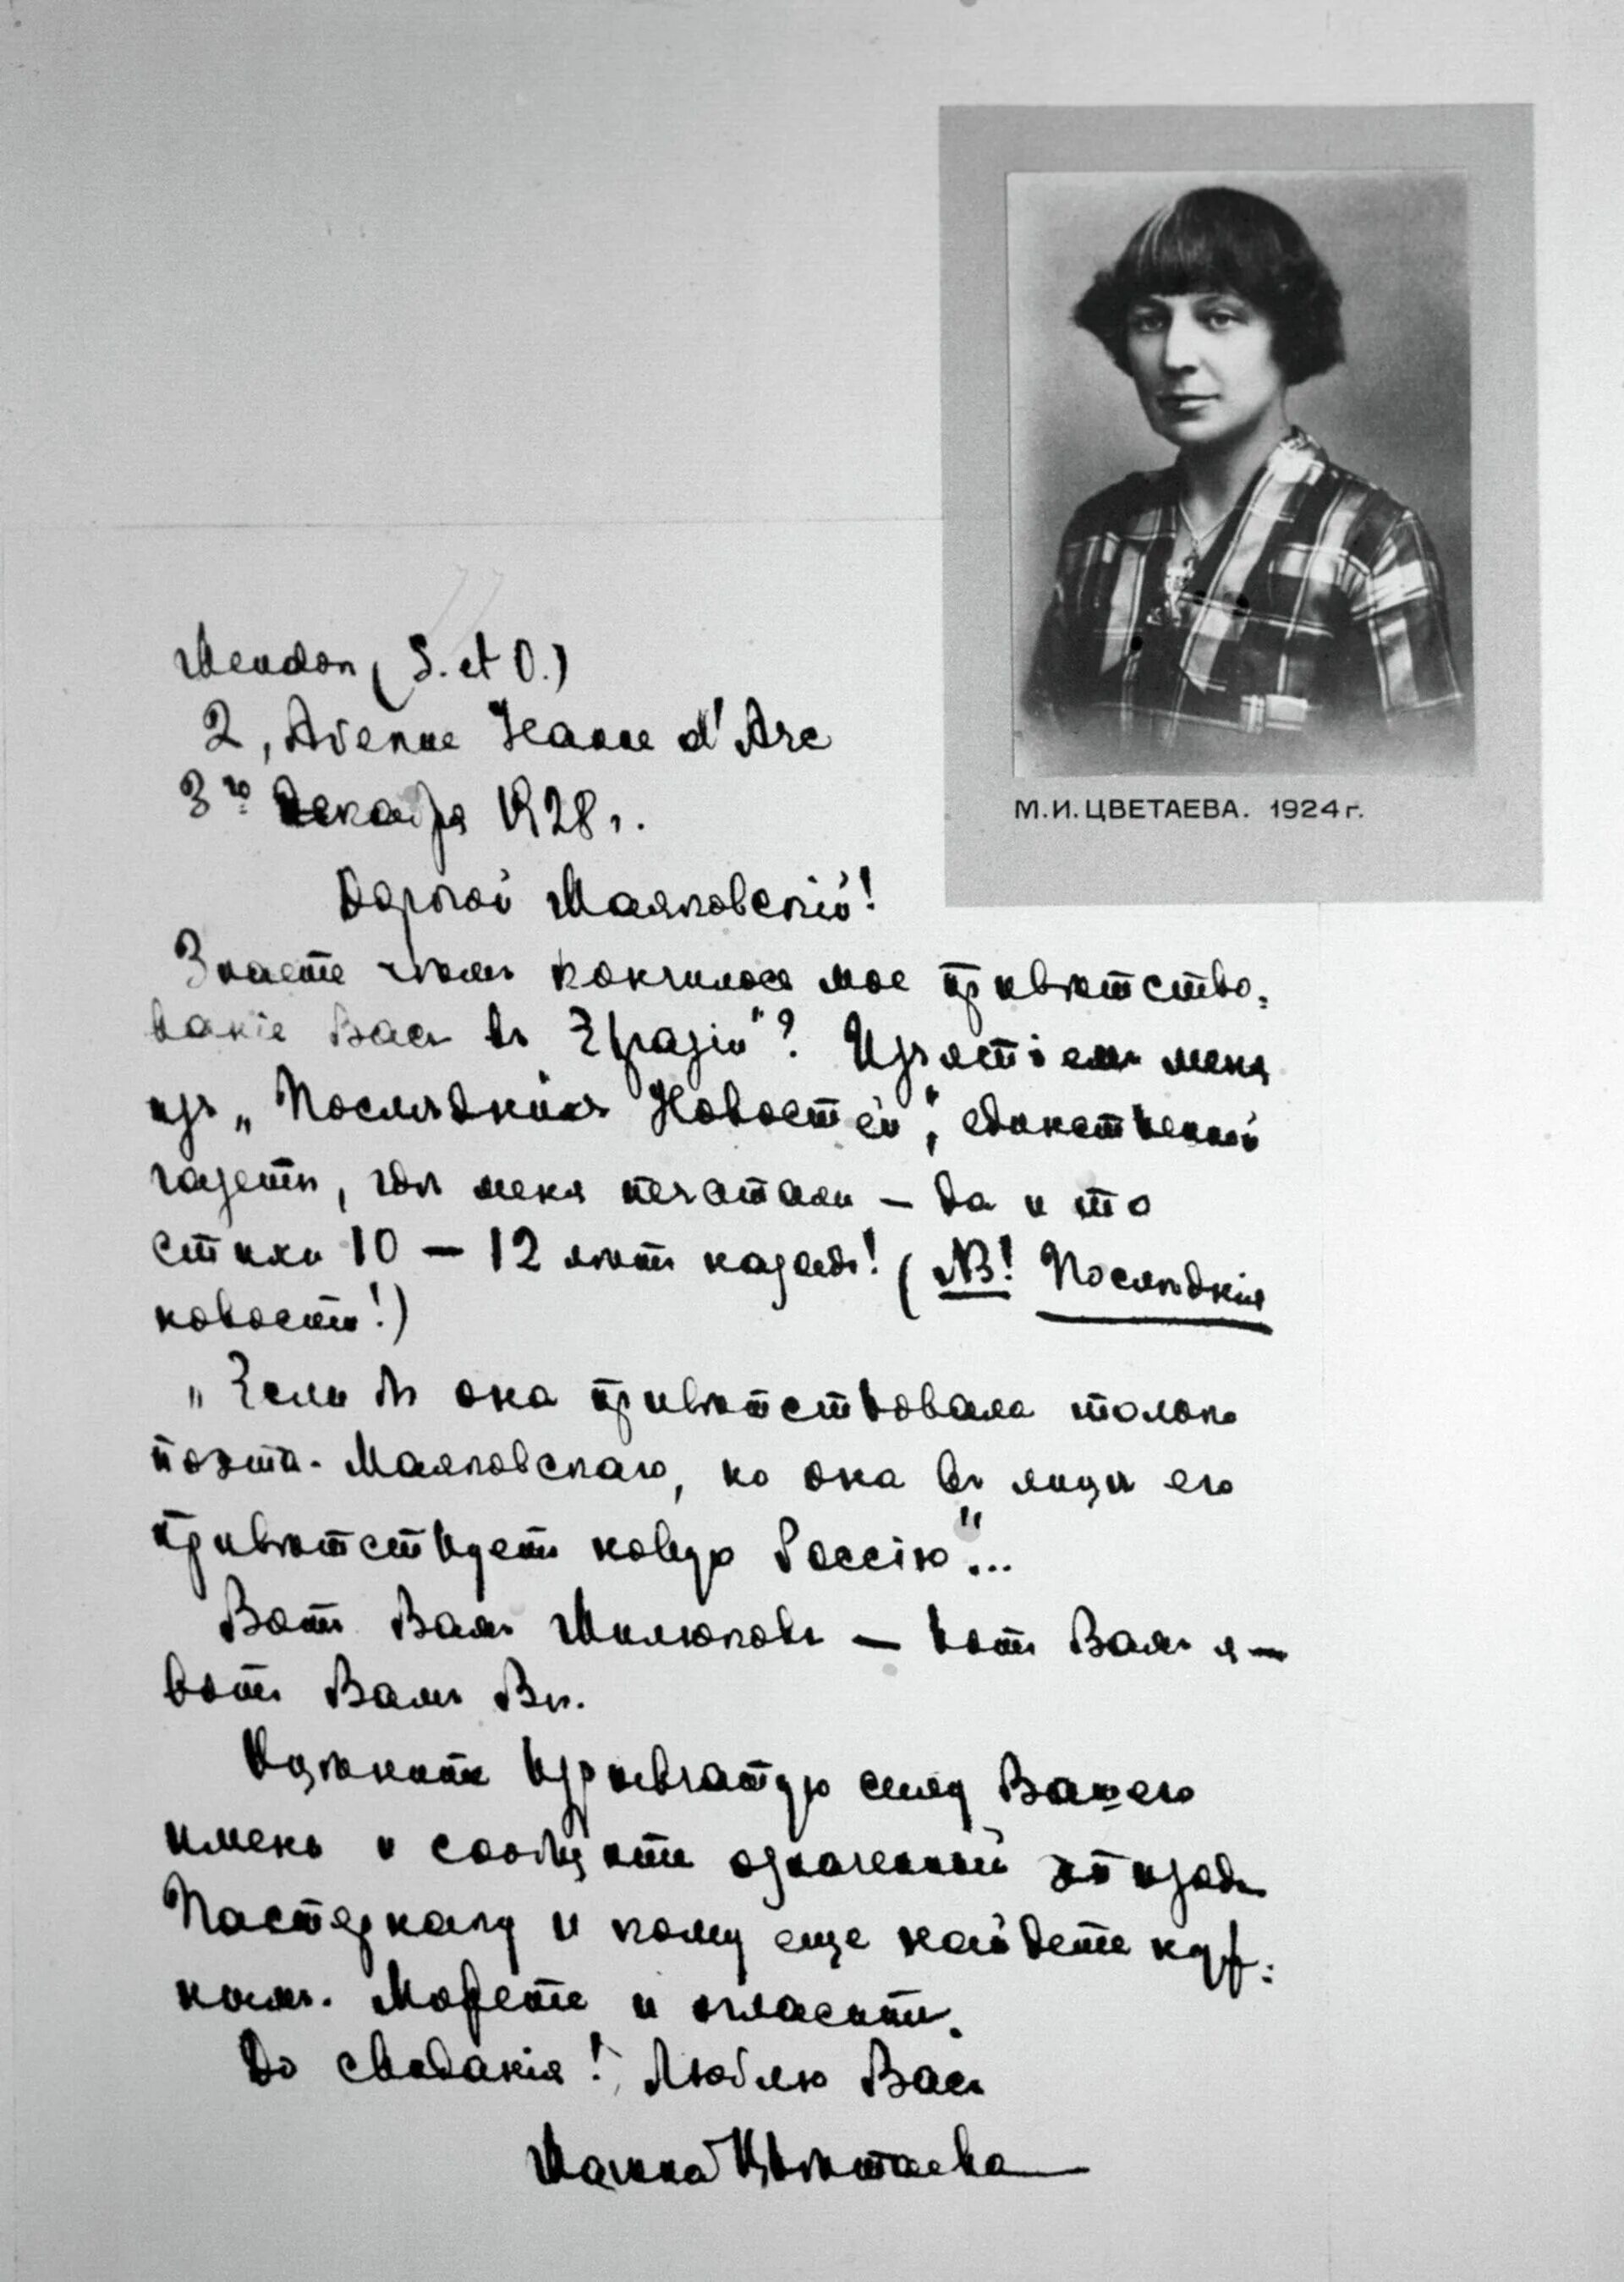 М.И. ЦВЕТАЕВА. 1924 г.
Meudon (S. et O.)
2, Avenue Jeanne d'Arc
3го Декабря 1928 г.
Дорогой Маяковскій!
Знаете чѣмъ кончилось мое привѣтство-
ваніе Васъ въ Евразіи"? Изъятіемъ меня
изъ „Послѣднихъ Новостей", единственной
газеты, гдѣ меня печатали — да и то
стихи 10 — 12 лѣтъ назадъ! (NB! Послѣднія
новости!)
„Если бъ она привѣтствовала только
поэта-Маяковскаго, но она въ лицѣ его
привѣтствуетъ новую Россію"...
Вотъ Вамъ Милюковъ — вотъ Вамъ я —
вотъ Вамъ Вы.
Оцѣните взрывчатую силу Вашего
имени и сообщите означенный эпизодъ
Пастернаку и кому еще найдете нуж-
нымъ. Можете и огласить.
До свиданія! Люблю Васъ
Марина Цвѣтаева